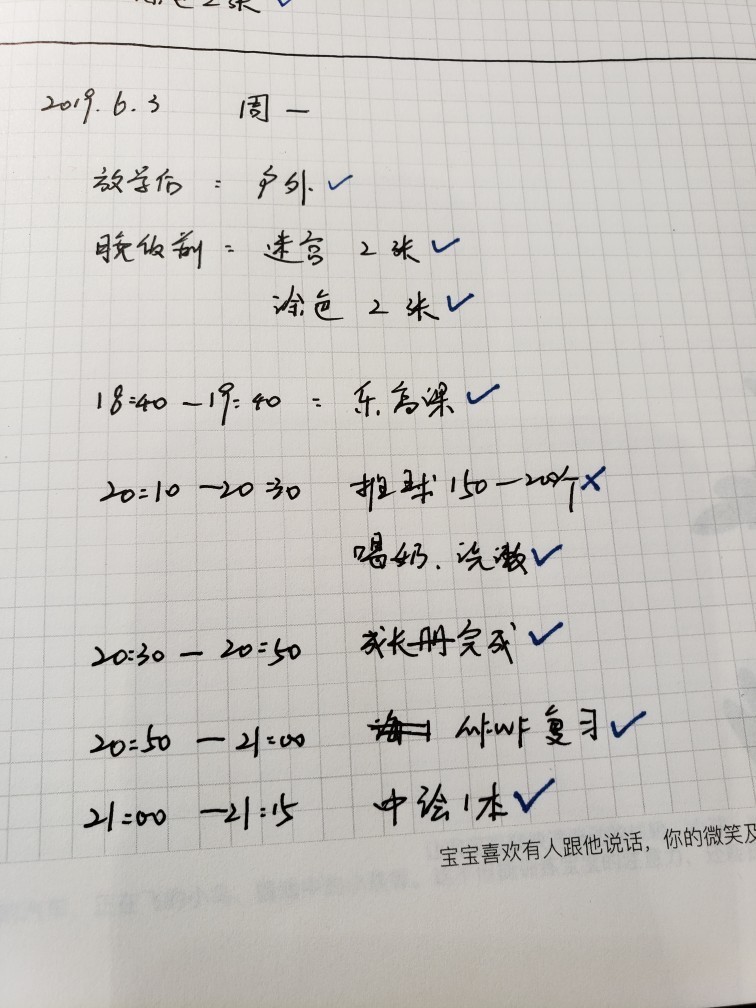 涂色2张 ✓
2019.6.3 周一
放学后: 户外. ✓
晚饭前: 迷宫 2张 ✓
涂色 2张 ✓
18:40 — 19:40 : 乐高课 ✓
20:10 — 20:30 推球 150 — 200个 ×
喝奶. 洗漱 ✓
20:30 — 20:50 成长册完成 ✓
20:50 — 21:00 复习 ✓
21:00 — 21:15 中绘1本 ✓
宝宝喜欢有人跟他说话,你的微笑及